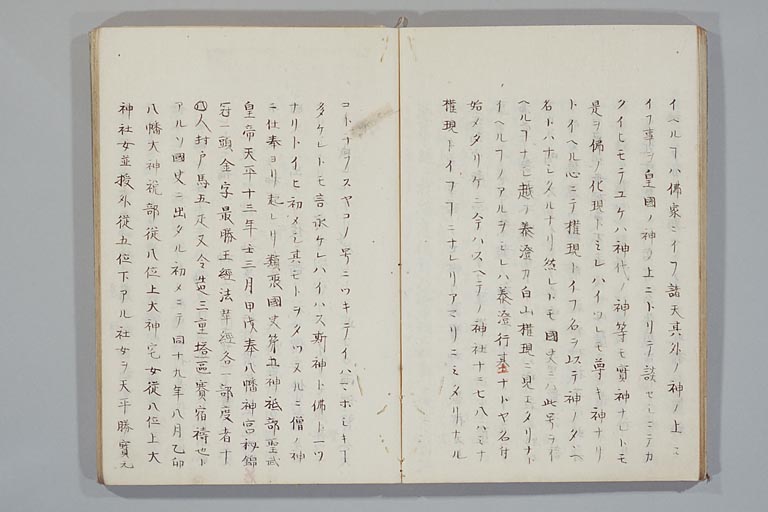 イヘルフハ佛家ニイフ諸天其外ノ神ノ上ニ
イフ事ヲ皇國ノ神ノ上ニトリテ談セシニテカ
タイヒモテユケハ神代ノ神等モ實神ナレトモ
是ヲ佛ノ化現トミレハイツレモ尊キ神ナリ
トイヘル心ニテ權現トイフ名ヲ以テ神ノタヘ
名トハナシタルナリ然レトモ國史ニハ此号ヲイ
ヘルフナシ越ノ泰澄カ白山權現ニ見エタリナト
イヘルフノアルヲミレハ泰澄行基ナトヤ名付
始メタリケン今ハスヘテノ神社十ニ七八ハミナ
權現トイフフニナレリアマリニミタリナル
コト
ヤコノ号ニツキテイハマホシキフ
多ケレトモ言永ケレハイハス斯神ト佛ト一ツ
ナリトイヒ初メシ其モトヲタツヌルニ僧ノ神
ニ仕奉ヨリ起レリ類聚國史第五神祗部聖武
皇帝天平十三年壬三月甲戌奉八幡神宮秘錦
冠一頭金字最勝王經法華經各一部度者十
人封戸馬五疋又令造三重塔一區賽宿禱也ト
アルソ國史ニ出タル初メニテ同十九年八月乙卯
八幡大神祝部從八位上大神宅女從八位上大
神社女並授外從五位下アル社女ヲ天平勝寳元